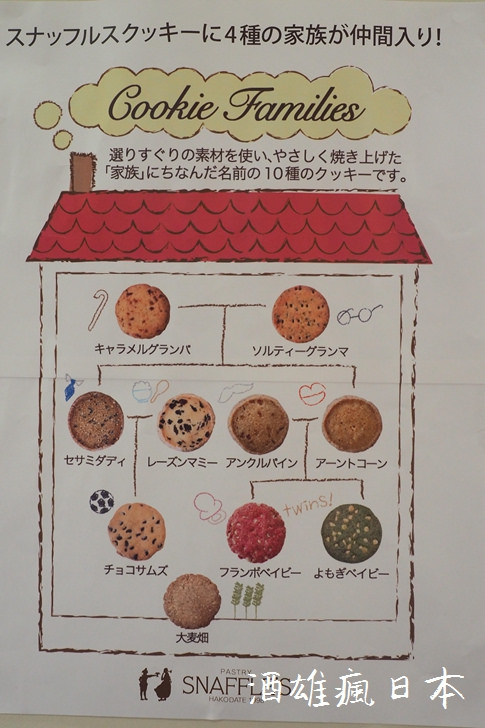 スナッフルスクッキーに4種の家族が仲間入り!
Cookie Families
選りすぐりの素材を使い、やさしく焼き上げた
「家族」にちなんだ名前の10種のクッキーです。
キャラメルグランパ
ソルティーグランマ
セサミダディ
レーズンマミー
アンクルパイン
アーントコーン
twins!
チョコサムズ
フランボベイビー
よもぎベイビー
大麦畑
PASTRY
SNAFFLE'S
HAKODATE
酒雄瘋日本